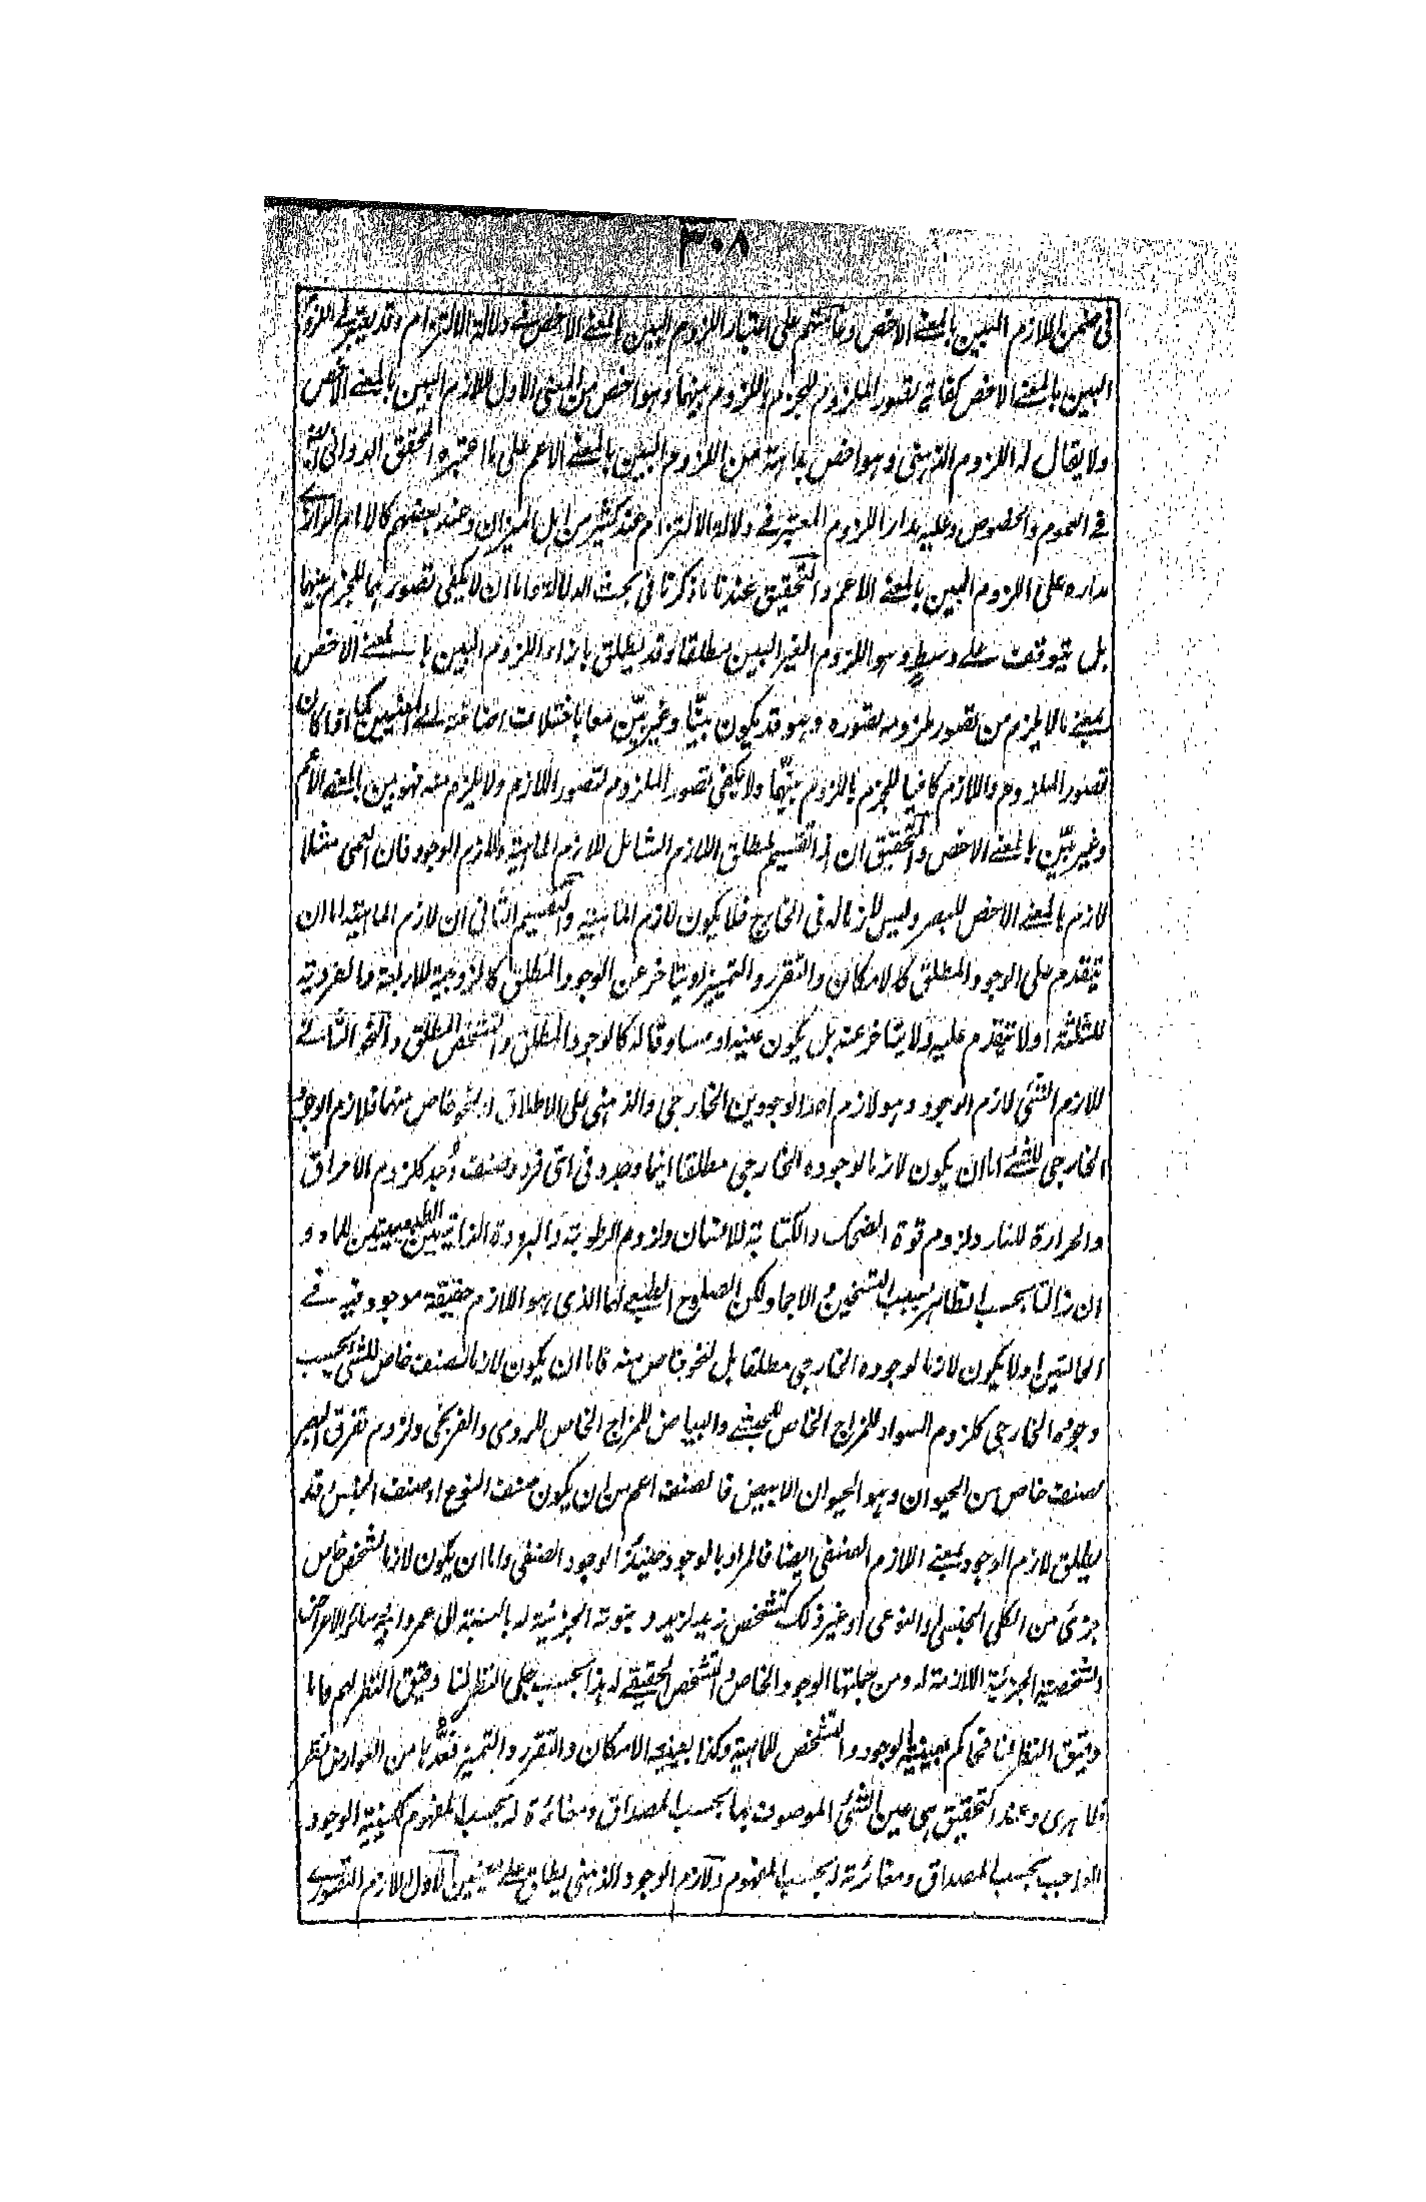 ٣٠٨
في ضمن اللازم البين بالمعنے الاخص وعامتهم على اعتبار اللزوم البين بالمعنے الاخص في دلالة الالتزام وقد يعتبر في اللزوم
البين بالمعنے الاخص كفاية تصور الملزوم للجزم باللزوم بينهما وهو اخص من المعنى الاول للازم البين بالمعنے الاخص
ولا يقال له اللزوم الذهني وهو اخص بداهة من اللزوم البين بالمعنے الاعم على ما اعتبره المحقق الدواني
في العموم والخصوص وعليه مدار اللزوم المعتبر في دلالة الالتزام عند كثير من اهل الميزان وعند بعضهم كالامام الرازي
مداره على اللزوم البين بالمعنے الاعم والتحقيق عندنا ما ذكرنا في بحث الدلالة واما ان لا يكفي تصورهما للجزم بينهما
بل يتوقف علے وسط وهو اللزوم الغير البين مطلقا وقد يطلق بازاء اللزوم البين بالمعنے الاخص
بمعنے ما لا يلزم من تصور ملزومه تصوره وهو قد يكون بيّنا وغير بيّن معا باختلاف اضافته الے المعنيين كما اذا كان
تصور الملزوم واللازم كافيا للجزم باللزوم بينهما ولا يكفي تصور الملزوم لتصور اللازم ولا يلزم منه فهو بين بالمعنے الاعم
وغير بيّن بالمعنے الاخص والتحقيق ان هذا التقسيم لمطلق اللازم الشامل للازم الماهية ولازم الوجود فان العمى مثلا
لازم بالمعنے الاخص للبصر وليس لازما له في الخارج فلا يكون لازم الماهية والتقسيم الثاني ان لازم الماهية اما ان
يتقدم على الوجود المطلق كالامكان والتقرر والتميز او يتاخر عن الوجود المطلق كالزوجية للاربعة والفردية
للثلثة او لا يتقدم عليه ولا يتاخر عنه بل يكون عينه او مساوقا له كالوجود المطلق والتشخص المطلق والنحو الثاني
للازم الشئ لازم الوجود وهو لازم احد الوجودين الخارجي والذهني على الاطلاق او بنحو خاص منهما فلازم الوجود
الخارجي للشئ اما ان يكون لازما لوجوده الخارجي مطلقا اينما وجد وفي اي فرد وصنف وُجد كلزوم الاحراق
والحرارة للنار ولزوم قوة الضحك والكتابة للانسان ولزوم الرطوبة والبرودة الذاتيتين الطبيعيتين للماء و
ان زالتا بحسب الظاهر بسبب التسخين والاجماد لكن الصلوح الطبعي لهما الذي هو اللازم حقيقة موجود فيه في
الحالتين او لا يكون لازما لوجوده الخارجي مطلقا بل لنحو خاص منه فاما ان يكون لازما لصنف خاص للشئ بحسب
وجوده الخارجي كلزوم السواد للمزاج الخاص للحبشي والبياض للمزاج الخاص للرومي والفرنجي ولزوم تفرق البصر
لصنف خاص من الحيوان وهو الحيوان الابيض فالصنف اعم من ان يكون صنف النوع او صنف الجنس وقد
يطلق لازم الوجود بمعنے اللازم الصنفي ايضا فالمراد بالوجود حينئذ الوجود الصنفي واما ان يكون لازما لشخص خاص
جزئي من الكلي الجنسي والنوعي او غير ذلك كتشخص زيد لزيد و الجزئية له بالنسبة الى عمرو وسائر الاعراض
الشخصية الجزئية اللازمة له ومن جملتها الوجود الخاص والتشخص الحقيقي له هذا بحسب جلي النظر لنا ودقيق النظر لهم فاما
دقيق النظر لنا فحاكم بعينية الوجود والتشخص للماهية وكذا بعينية الامكان والتقرر والتميز فعَدُّها من العوارض بنظر
ظاهري وعند التحقيق هي عين الشئ الموصوف بها بحسب المصداق ومغائرة له بحسب المفهوم كعينية الوجود
الواجب بحسب المصداق ومغائرته له بحسب المفهوم ولازم الوجود الذهني يطلق علے معنيين الاول اللازم التصوري